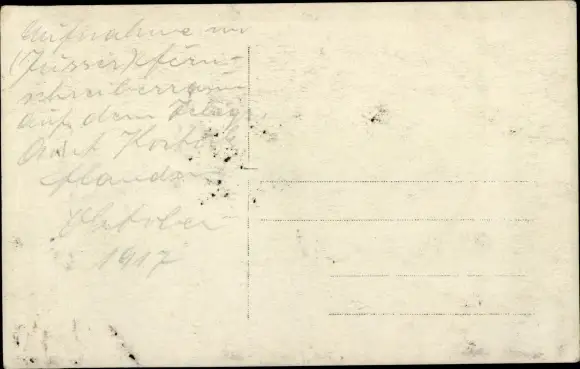 Aufnahme im
(Züssir) fern-
schreiberraum
auf dem Telegr.
Amt
Flandern
Oktober
1917